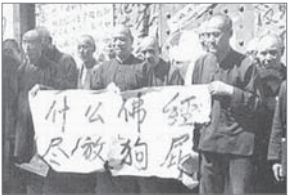 什么佛經
尽放狗屁